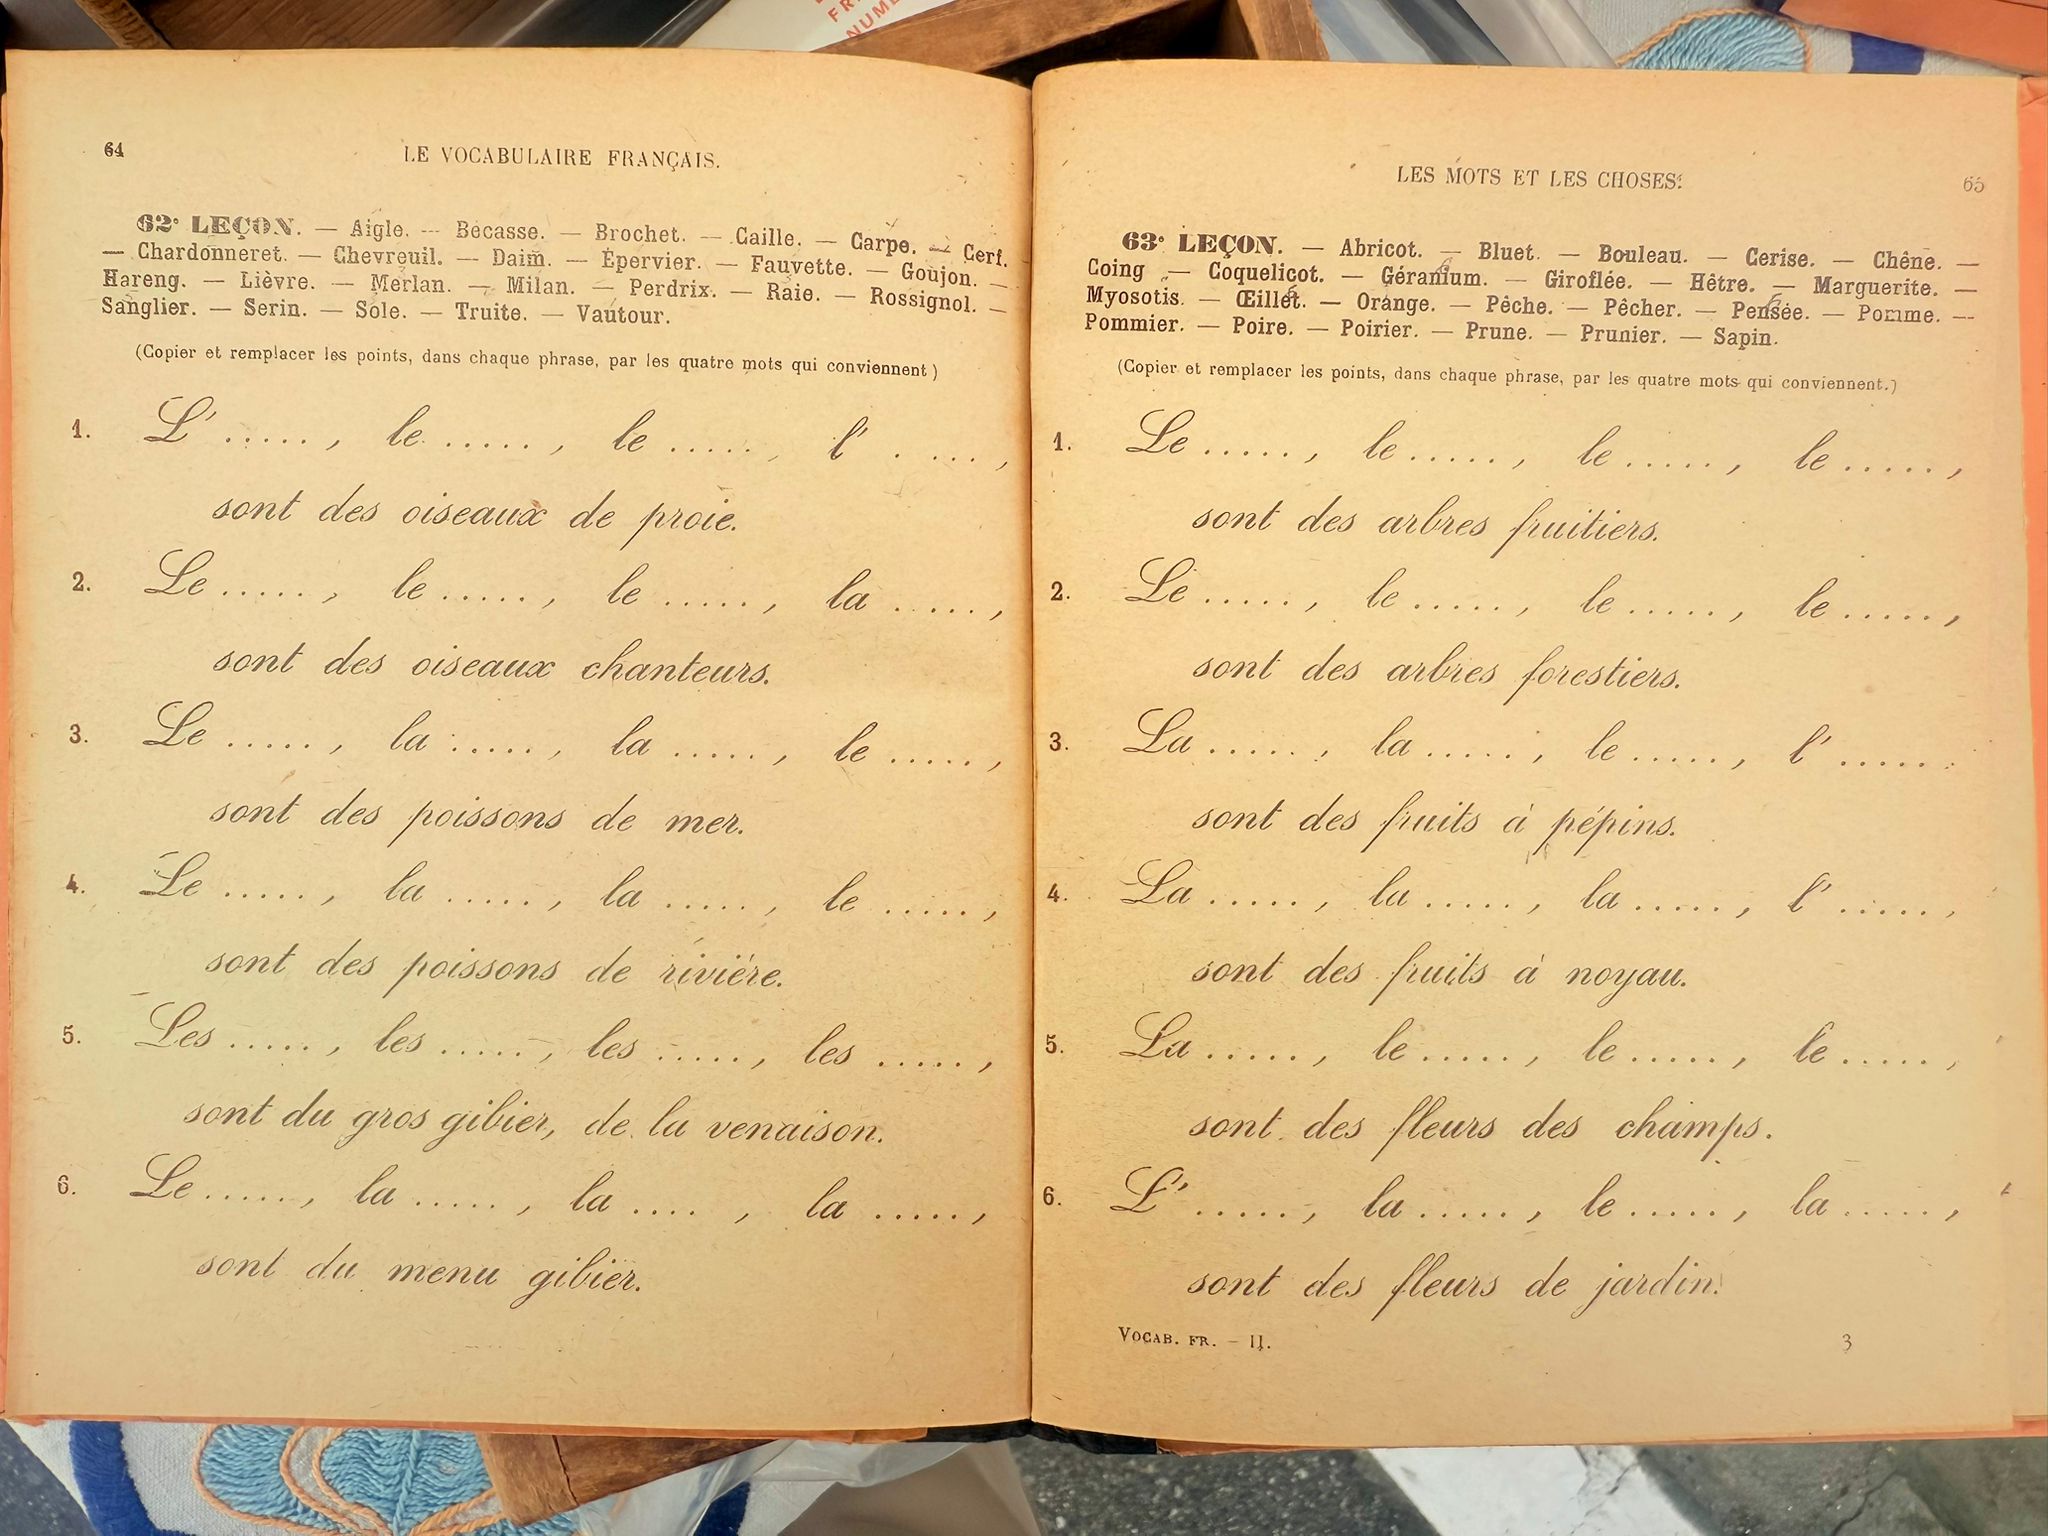 FR
NUM
64
LE VOCABULAIRE FRANÇAIS.
62e LEÇON. — Aigle. — Bécasse. — Brochet. — Caille. — Carpe. — Cerf.
— Chardonneret. — Chevreuil. — Daim. — Épervier. — Fauvette. — Goujon. —
Hareng. — Lièvre. — Merlan. — Milan. — Perdrix. — Raie. — Rossignol. —
Sanglier. — Serin. — Sole. — Truite. — Vautour.
(Copier et remplacer les points, dans chaque phrase, par les quatre mots qui conviennent)
1. L' ..... , le ..... , le ..... , l' ..... ,
sont des oiseaux de proie.
2. Le ..... , le ..... , le ..... , la ..... ,
sont des oiseaux chanteurs.
3. Le ..... , la ..... , la ..... , le ..... ,
sont des poissons de mer.
4. Le ..... , la ..... , la ..... , le ..... ,
sont des poissons de rivière.
5. Les ..... , les ..... , les ..... , les ..... ,
sont du gros gibier, de la venaison.
6. Le ..... , la ..... , la .... , la ..... ,
sont du menu gibier.
LES MOTS ET LES CHOSES.
65
63e LEÇON. — Abricot. — Bluet. — Bouleau. — Cerise. — Chêne. —
Coing — Coquelicot. — Géranium. — Giroflée. — Hêtre. — Marguerite. —
Myosotis. — Œillet. — Orange. — Pêche. — Pêcher. — Pensée. — Pomme. —
Pommier. — Poire. — Poirier. — Prune. — Prunier. — Sapin.
(Copier et remplacer les points, dans chaque phrase, par les quatre mots qui conviennent.)
1. Le ..... , le ..... , le ..... , le ..... ,
sont des arbres fruitiers.
2. Le ..... , le ..... , le ..... , le ..... ,
sont des arbres forestiers.
3. La ..... , la ..... , le ..... , l' ..... .
sont des fruits à pépins.
4. La ..... , la ..... , la ..... , l' ..... ,
sont des fruits à noyau.
5. La ..... , le ..... , le ..... , le ..... ,
sont des fleurs des champs.
6. L' ..... , la ..... , le ..... , la ..... ,
sont des fleurs de jardin.
VOCAB. FR. — II.
3